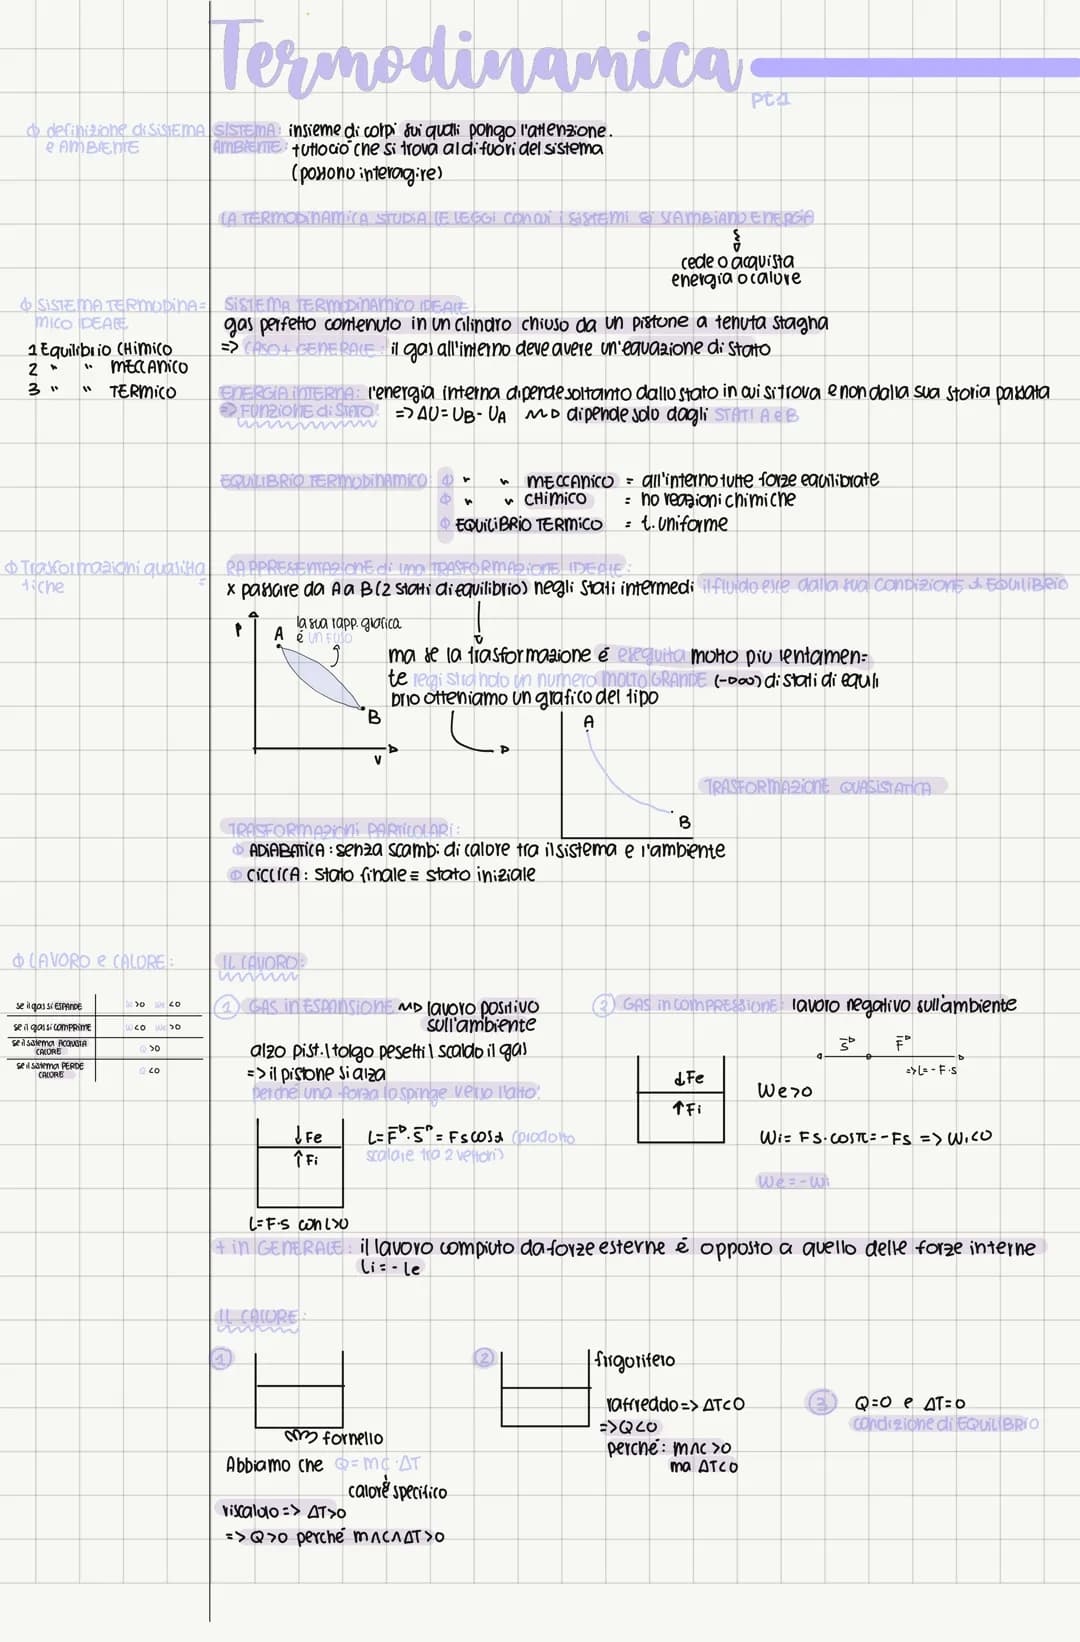 Termodinamica
pt.1
definizione di SISTEMA e AMBIENTE
SISTEMA: insieme di corpi sui quali pongo l'attenzione.
AMBIENTE: tutto ciò che si trova al di fuori del sistema
(possono interagire)
LA TERMODINAMICA STUDIA LE LEGGI con cui i SISTEMI si SCAMBIANO ENERGIA
cede o acquista
energia o calore
SISTEMA TERMODINA=
MICO IDEALE
1 Equilibrio CHIMICO
2 " " MECCANICO
3 " " TERMICO
SISTEMA TERMODINAMICO IDEALE
gas perfetto contenuto in un cilindro chiuso da un pistone a tenuta stagna
=> CASO + GENERALE: il gas all'interno deve avere un'equazione di stato
ENERGIA INTERNA: l'energia interna dipende soltanto dallo stato in cui si trova e non dalla sua storia passata
=> FUNZIONE di STATO! => ΔU = UB - UA ~> dipende solo dagli STATI A e B
EQUILIBRIO TERMODINAMICO: " " MECCANICO = all'interno tutte forze equilibrate
" " CHIMICO = no reazioni chimiche
EQUILIBRIO TERMICO = t. uniforme
Trasformazioni quasista
tiche =
RAPPRESENTAZIONE di una TRASFORMAZIONE IDEALE:
x passare da A a B (2 stati di equilibrio) negli stati intermedi il fluido esce dalla sua condizione d EQUILIBRIO
P
A
la sua rapp. grafica
é UN FUSO
B
V
ma se la trasformazione é eseguita molto piu lentamen=
te registrando un numero MOLTO GRANDE (->∞) di stati di equili
brio otteniamo un grafico del tipo
A
B
TRASFORMAZIONE QUASISTATICA
TRASFORMAZIONI PARTICOLARI:
ADIABATICA: senza scambi di calore tra il sistema e l'ambiente
CICLICA: stato finale ≡ stato iniziale
LAVORO e CALORE:
se il gas si ESPANDE Wi >0 We <0
se il gas si COMPRIME Wi <0 We >0
se il sistema ACQUISTA CALORE Q >0
se il sistema PERDE CALORE Q <0
IL LAVORO:
1 GAS in ESPANSIONE ~> lavoro positivo
sull'ambiente
alzo pist. \ tolgo pesetti \ scaldo il gas
=> il pistone si alza
perché una forza lo spinge verso l'alto:
↓Fe
↑Fi
L = F · S = F s cosα (prodotto
scalare tra 2 vettori)
L = F·s con L>0
2 GAS in COMPRESSIONE: lavoro negativo sull'ambiente
↓Fe
↑Fi
S F
=> L = - F·S
We>0
Wi = Fs·cosπ = -Fs => Wi<0
We = -Wi
+ in GENERALE: il lavoro compiuto da forze esterne é opposto a quello delle forze interne
Li = - Le
IL CALORE:
1
fornello
Abbiamo che Q = mc·ΔT
calore specifico
riscaldo => ΔT>0
=> Q>0 perché m∧c∧ΔT>0
2
frigorifero
raffreddo => ΔT<0
=> Q<0
perché: m∧c >0
ma ΔT<0
3 Q=0 e ΔT=0
condizione di EQUILIBRIO